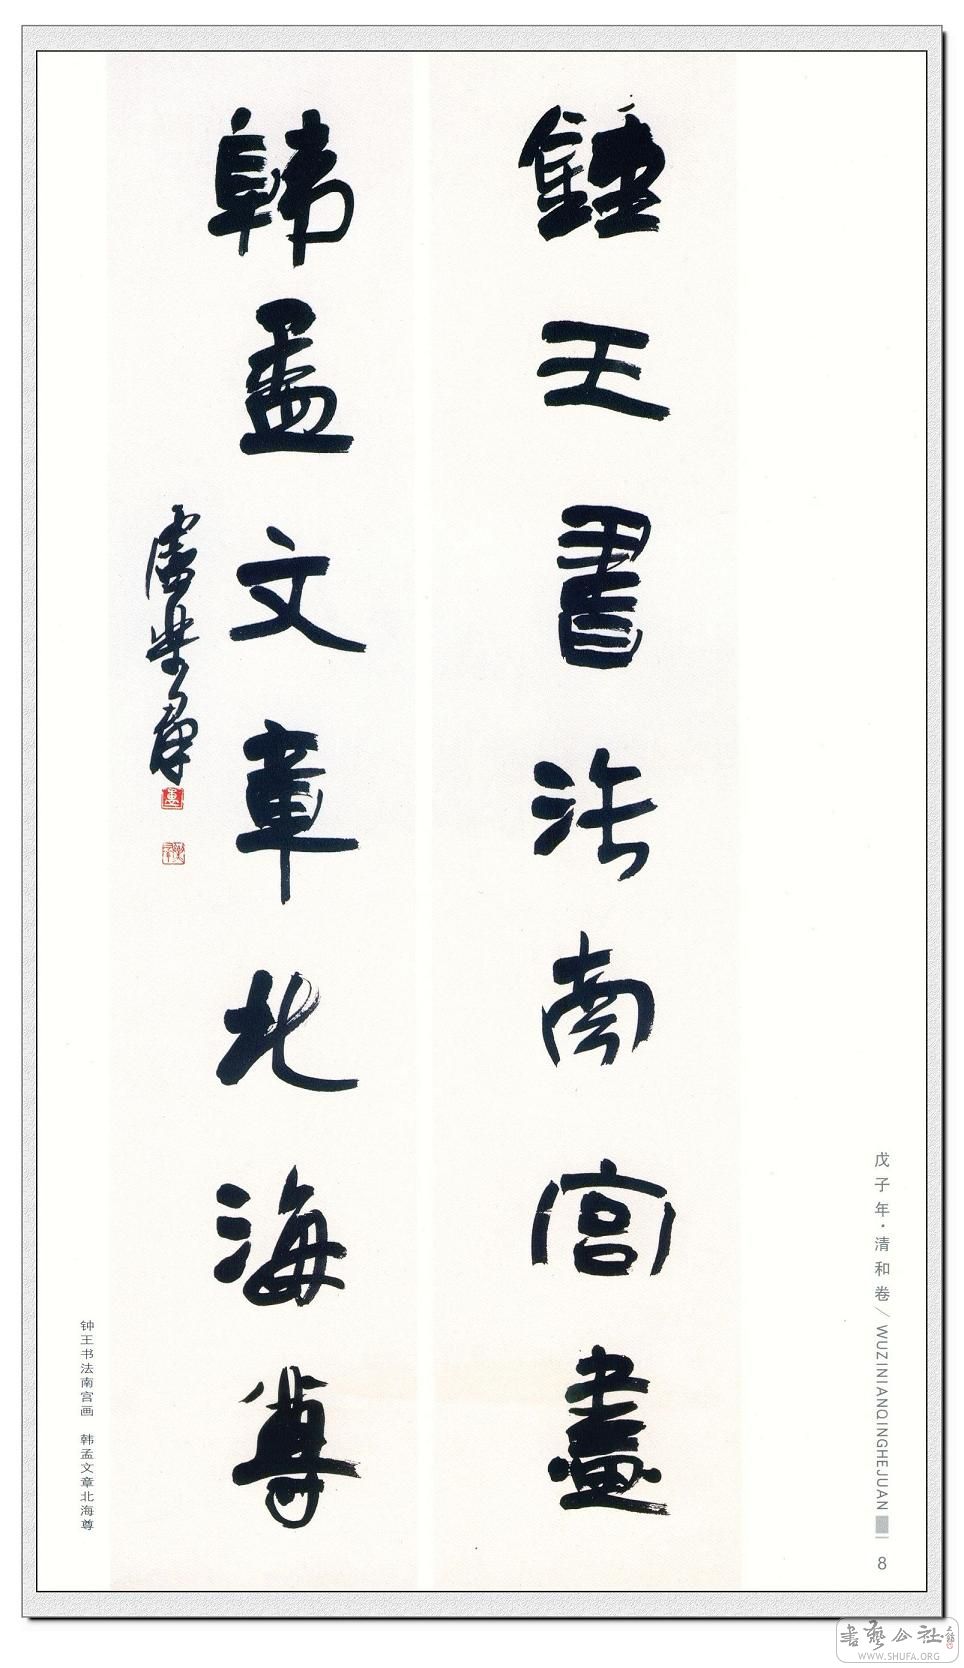 鍾王書法南宮畫
韓孟文章北海尊
盧樂群
钟王书法南宫画 韩孟文章北海尊
戊子年·清和卷/WUZINIANQINGHEJUAN
8
書藝公社
WWW.SHUFA.ORG